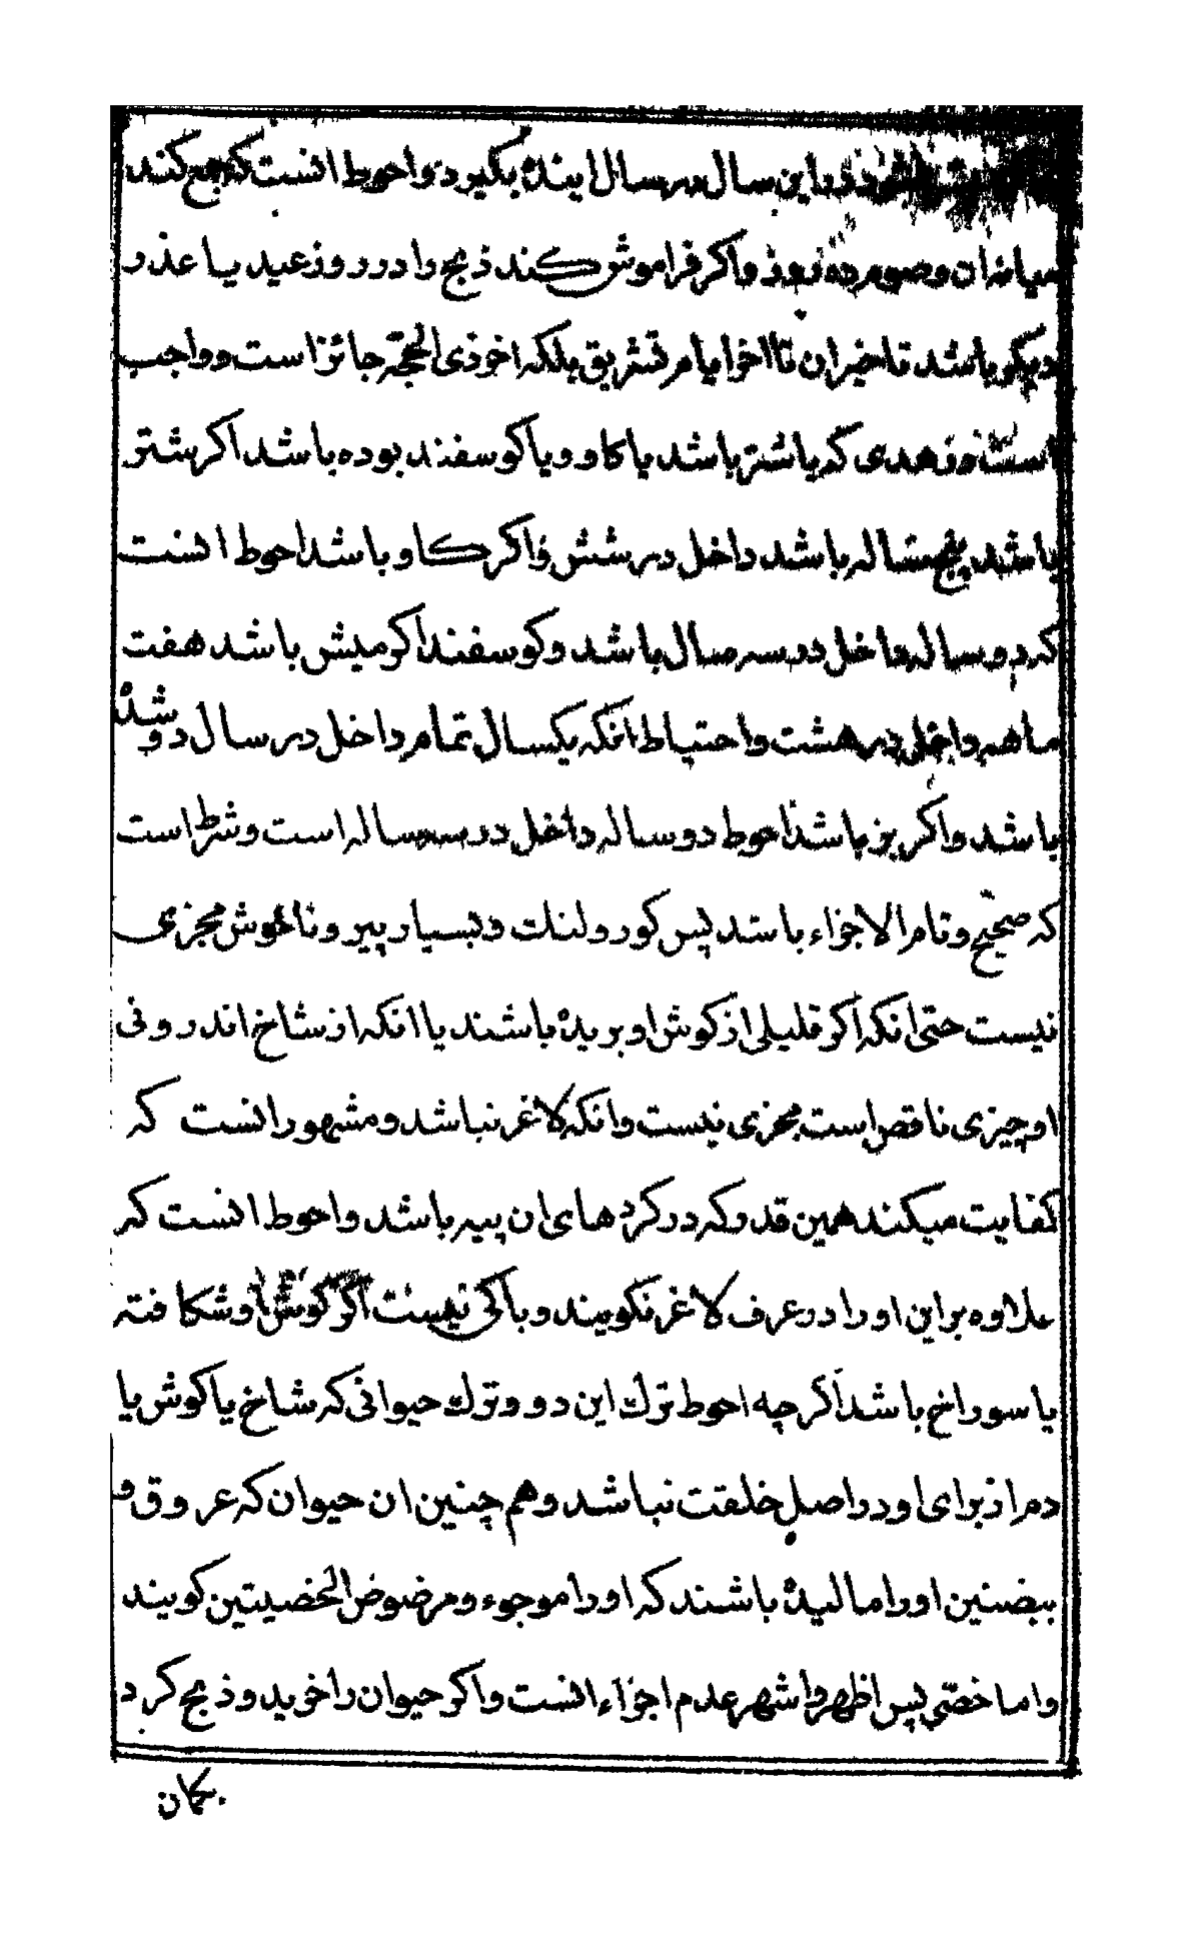 این سال در سال اینده بگیرد واحوط انست که جمع کند
میانه ان وصوم ده روز واکر فراموش کند ذبح را در روز عید یا عذر
دیکر باشد تاخیر ان تا اخر ایام تشریق بلکه اخر ذی الحجّة جائز است وواجب
است در هدی که یا شتر باشد یا کاو ویا کوسفند بوده باشد اکر شتر
باشد پنج ساله باشد داخل در شش واکر کاو باشد احوط انست
که دو ساله داخل در سه سال باشد وکوسفند اکر میش باشد هفت
ماهه داخل در هشت واحتیاط انکه یکسال تمام داخل در سال دو شده
باشد واکر بز باشد احوط دو ساله داخل در سه ساله است وشرط است
که صحیح وتام الاجزاء باشد پس کور ولنك وبسیار پیر وناخوش مجزی
نیست حتی انکه اکر قلیلی از کوش او بریده باشند یا انکه از شاخ اندرونی
او چیزی ناقص است مجزی نیست وانکه لاغر نباشد ومشهور انست که
کفایت میکند همین قدر که در کرده های ان پیه باشد واحوط انست که
علاوه بر این او را در عرف لاغر نکویند وباکی نیست اکر کوش او شکافته
یا سوراخ باشد اکر چه احوط ترك این دو وترك حیوانی که شاخ یا کوش یا
دم از برای او در اصل خلقت نباشد وهم چنین ان حیوان که عروق و
بیضتین او را مالیده باشند که او را موجوء ومرضوض الخصیتین کویند
واما خصّی پس اظهر واشهر عدم اجزاء انست واکر حیوان را خرید وذبح کرد
بکمان